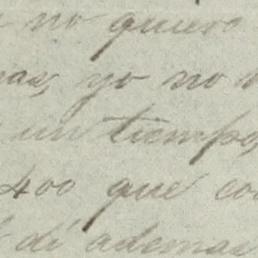 no quiero
mas, yo no
un tiempo,
400 que co
di ademas